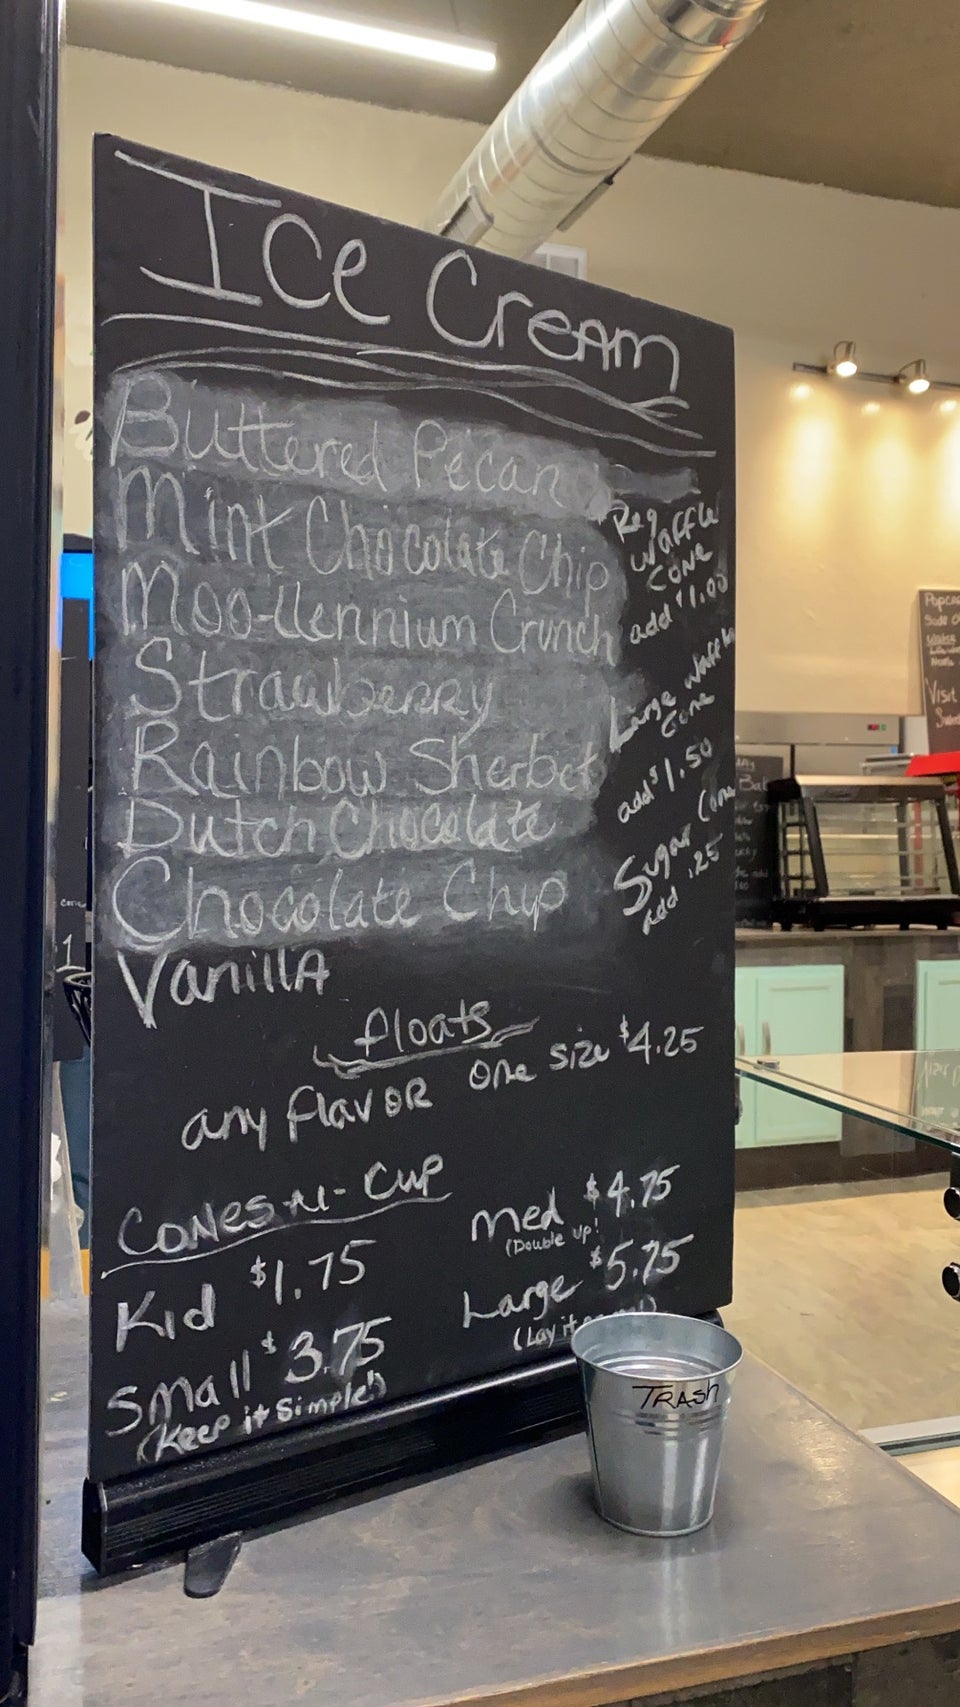 Ice Cream
Buttered Pecan
Mint Chocolate Chip
Moo-llennium Crunch
Strawberry
Rainbow Sherbet
Dutch Chocolate
Chocolate Chip
Vanilla
Reg
Waffle
Cone
add $1.00
Large Waffle
Cone
add $1.50
Sugar Cone
add .25
floats
any flavor one size $4.25
Cones-N-Cup
Kid $1.75
Small $3.75
(Keep it Simple!)
Med $4.75
(Double up!
Large $5.75
(Lay it
TRASH
Visit